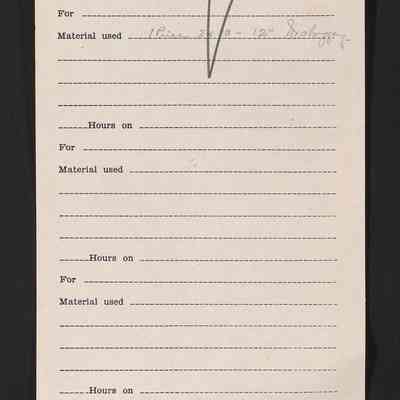 For
Material used 1 Piece 2 x 8 - 12'
Hours on
For
Material used
Hours on
For
Material used
Hours on